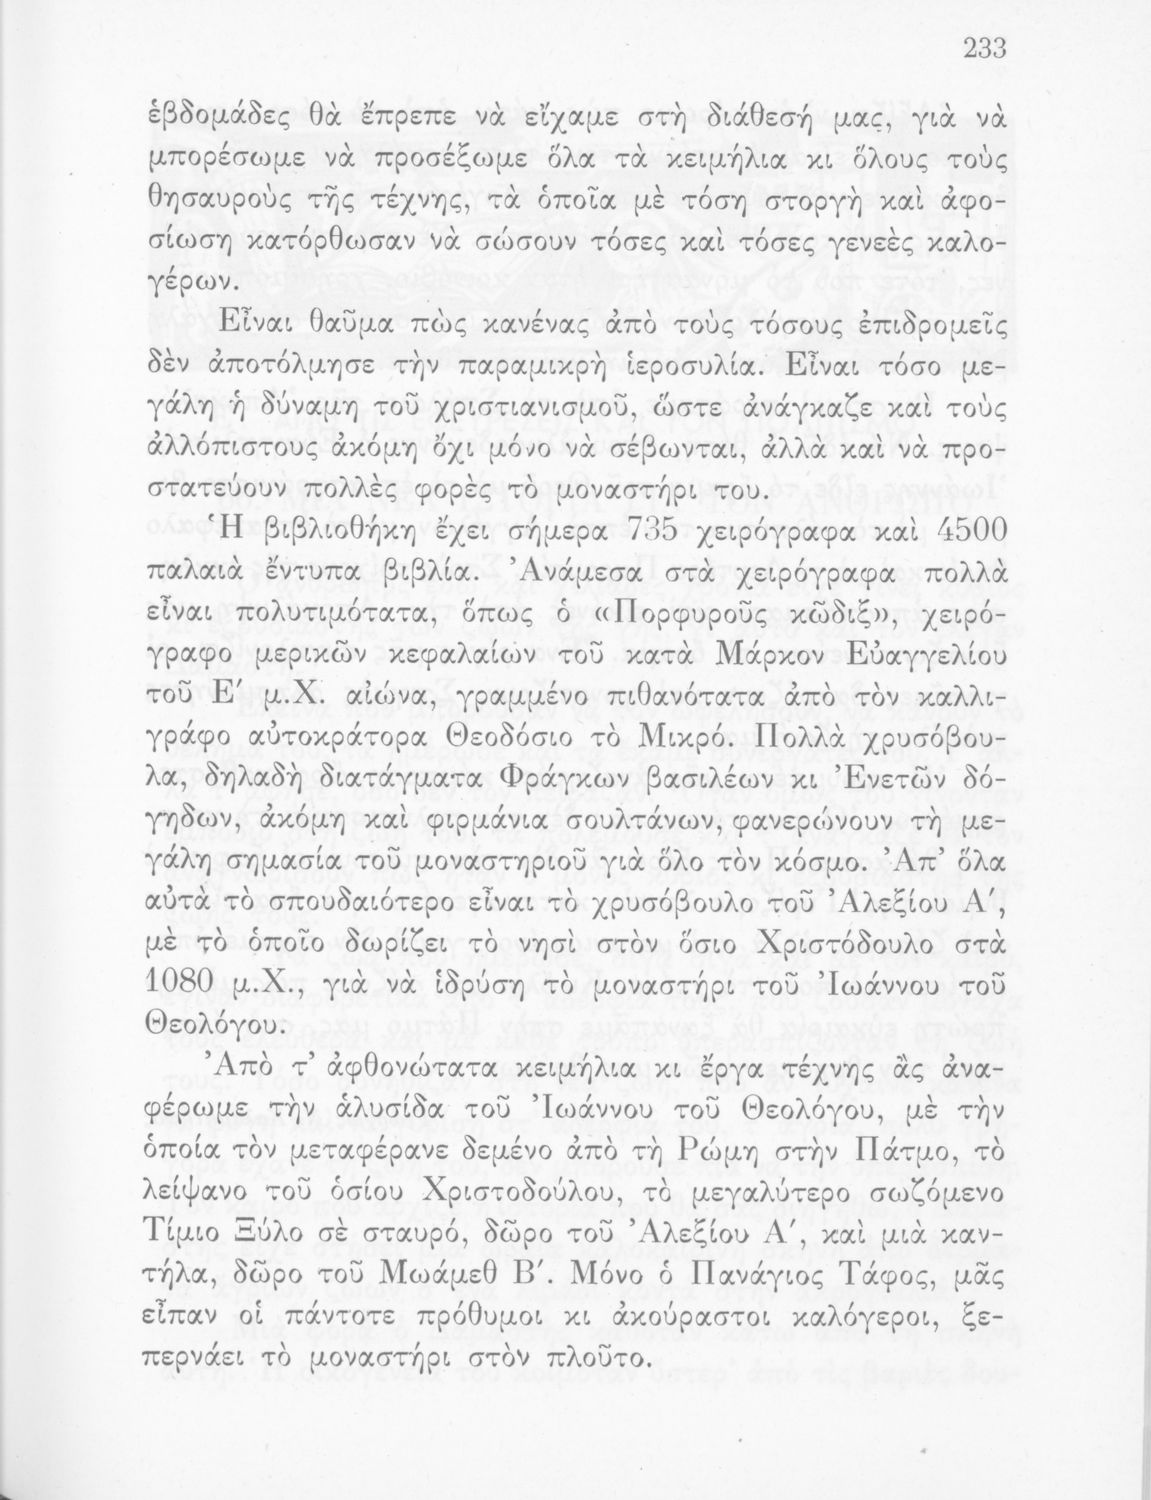 233
ἑβδομάδες θὰ ἔπρεπε νὰ εἴχαμε στὴ διάθεσή μας, γιὰ νὰ
μπορέσωμε νὰ προσέξωμε ὅλα τὰ κειμήλια κι ὅλους τοὺς
θησαυροὺς τῆς τέχνης, τὰ ὁποῖα μὲ τόση στοργὴ καὶ ἀφο-
σίωση κατόρθωσαν νὰ σώσουν τόσες καὶ τόσες γενεὲς καλο-
γέρων.
Εἶναι θαῦμα πὼς κανένας ἀπὸ τοὺς τόσους ἐπιδρομεῖς
δὲν ἀποτόλμησε τὴν παραμικρὴ ἱεροσυλία. Εἶναι τόσο με-
γάλη ἡ δύναμη τοῦ χριστιανισμοῦ, ὥστε ἀνάγκαζε καὶ τοὺς
ἀλλόπιστους ἀκόμη ὄχι μόνο νὰ σέβωνται, ἀλλὰ καὶ νὰ προ-
στατεύουν πολλὲς φορὲς τὸ μοναστήρι του.
Ἡ βιβλιοθήκη ἔχει σήμερα 735 χειρόγραφα καὶ 4500
παλαιὰ ἔντυπα βιβλία. Ἀνάμεσα στὰ χειρόγραφα πολλὰ
εἶναι πολυτιμότατα, ὅπως ὁ «Πορφυροῦς κῶδιξ», χειρό-
γραφο μερικῶν κεφαλαίων τοῦ κατὰ Μάρκον Εὐαγγελίου
τοῦ Ε′ μ.Χ. αἰώνα, γραμμένο πιθανότατα ἀπὸ τὸν καλλι-
γράφο αὐτοκράτορα Θεοδόσιο τὸ Μικρό. Πολλὰ χρυσόβου-
λα, δηλαδὴ διατάγματα Φράγκων βασιλέων κι Ἐνετῶν δό-
γηδων, ἀκόμη καὶ φιρμάνια σουλτάνων, φανερώνουν τὴ με-
γάλη σημασία τοῦ μοναστηριοῦ γιὰ ὅλο τὸν κόσμο. Ἀπ’ ὅλα
αὐτὰ τὸ σπουδαιότερο εἶναι τὸ χρυσόβουλο τοῦ Ἀλεξίου Α′,
μὲ τὸ ὁποῖο δωρίζει τὸ νησὶ στὸν ὅσιο Χριστόδουλο στὰ
1080 μ.Χ., γιὰ νὰ ἱδρύση τὸ μοναστήρι τοῦ Ἰωάννου τοῦ
Θεολόγου.
Ἀπὸ τ’ ἀφθονώτατα κειμήλια κι ἔργα τέχνης ἂς ἀνα-
φέρωμε τὴν ἁλυσίδα τοῦ Ἰωάννου τοῦ Θεολόγου, μὲ τὴν
ὁποία τὸν μεταφέρανε δεμένο ἀπὸ τὴ Ρώμη στὴν Πάτμο, τὸ
λείψανο τοῦ ὁσίου Χριστοδούλου, τὸ μεγαλύτερο σωζόμενο
Τίμιο Ξύλο σὲ σταυρό, δῶρο τοῦ Ἀλεξίου Α′, καὶ μιὰ καν-
τήλα, δῶρο τοῦ Μωάμεθ Β′. Μόνο ὁ Πανάγιος Τάφος, μᾶς
εἶπαν οἱ πάντοτε πρόθυμοι κι ἀκούραστοι καλόγεροι, ξε-
περνάει τὸ μοναστήρι στὸν πλοῦτο.